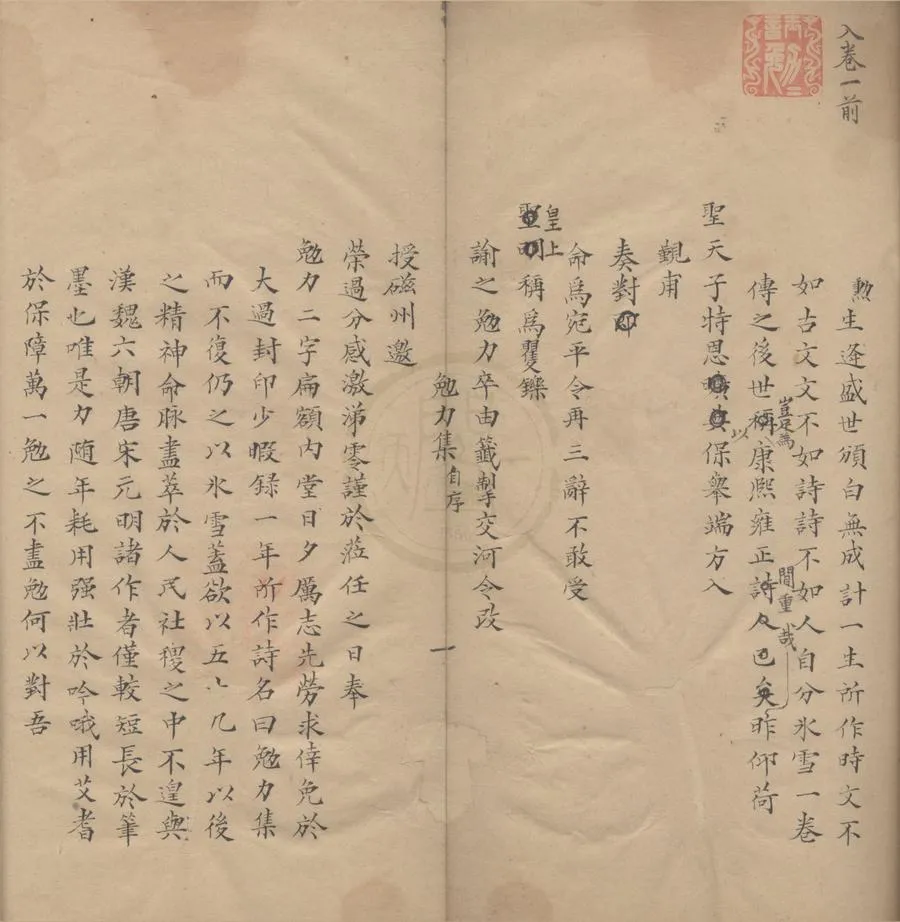 入卷一前
勲生逢盛世頒白無成計一生所作時文不
如古文文不如詩詩不如人自分氷雪一卷
傳之後世稱康熈雍正詩人已矣昨仰荷
豈足為
間重
哉
聖天子特恩保舉端方入
以
覲甫
奏對即
命爲宛平令再三辭不敢受
皇上
聖明稱爲矍鑠
諭之勉力卒由籤掣交河令改
勉力集 自序
一
授磁州邀
榮過分感激涕零謹於蒞任之日奉
勉力二字扁額内堂日夕厲志先勞求倖免於
大過封印少暇録一年所作詩名曰勉力集
而不復仍之以氷雪蓋欲以五十九年以後
之精神命脉盡萃於人民社稷之中不遑與
漢魏六朝唐宋元明諸作者僅較短長於筆
墨也唯是力随年耗用强壯於吟哦用艾耆
於保障萬一勉之不盡勉何以對吾